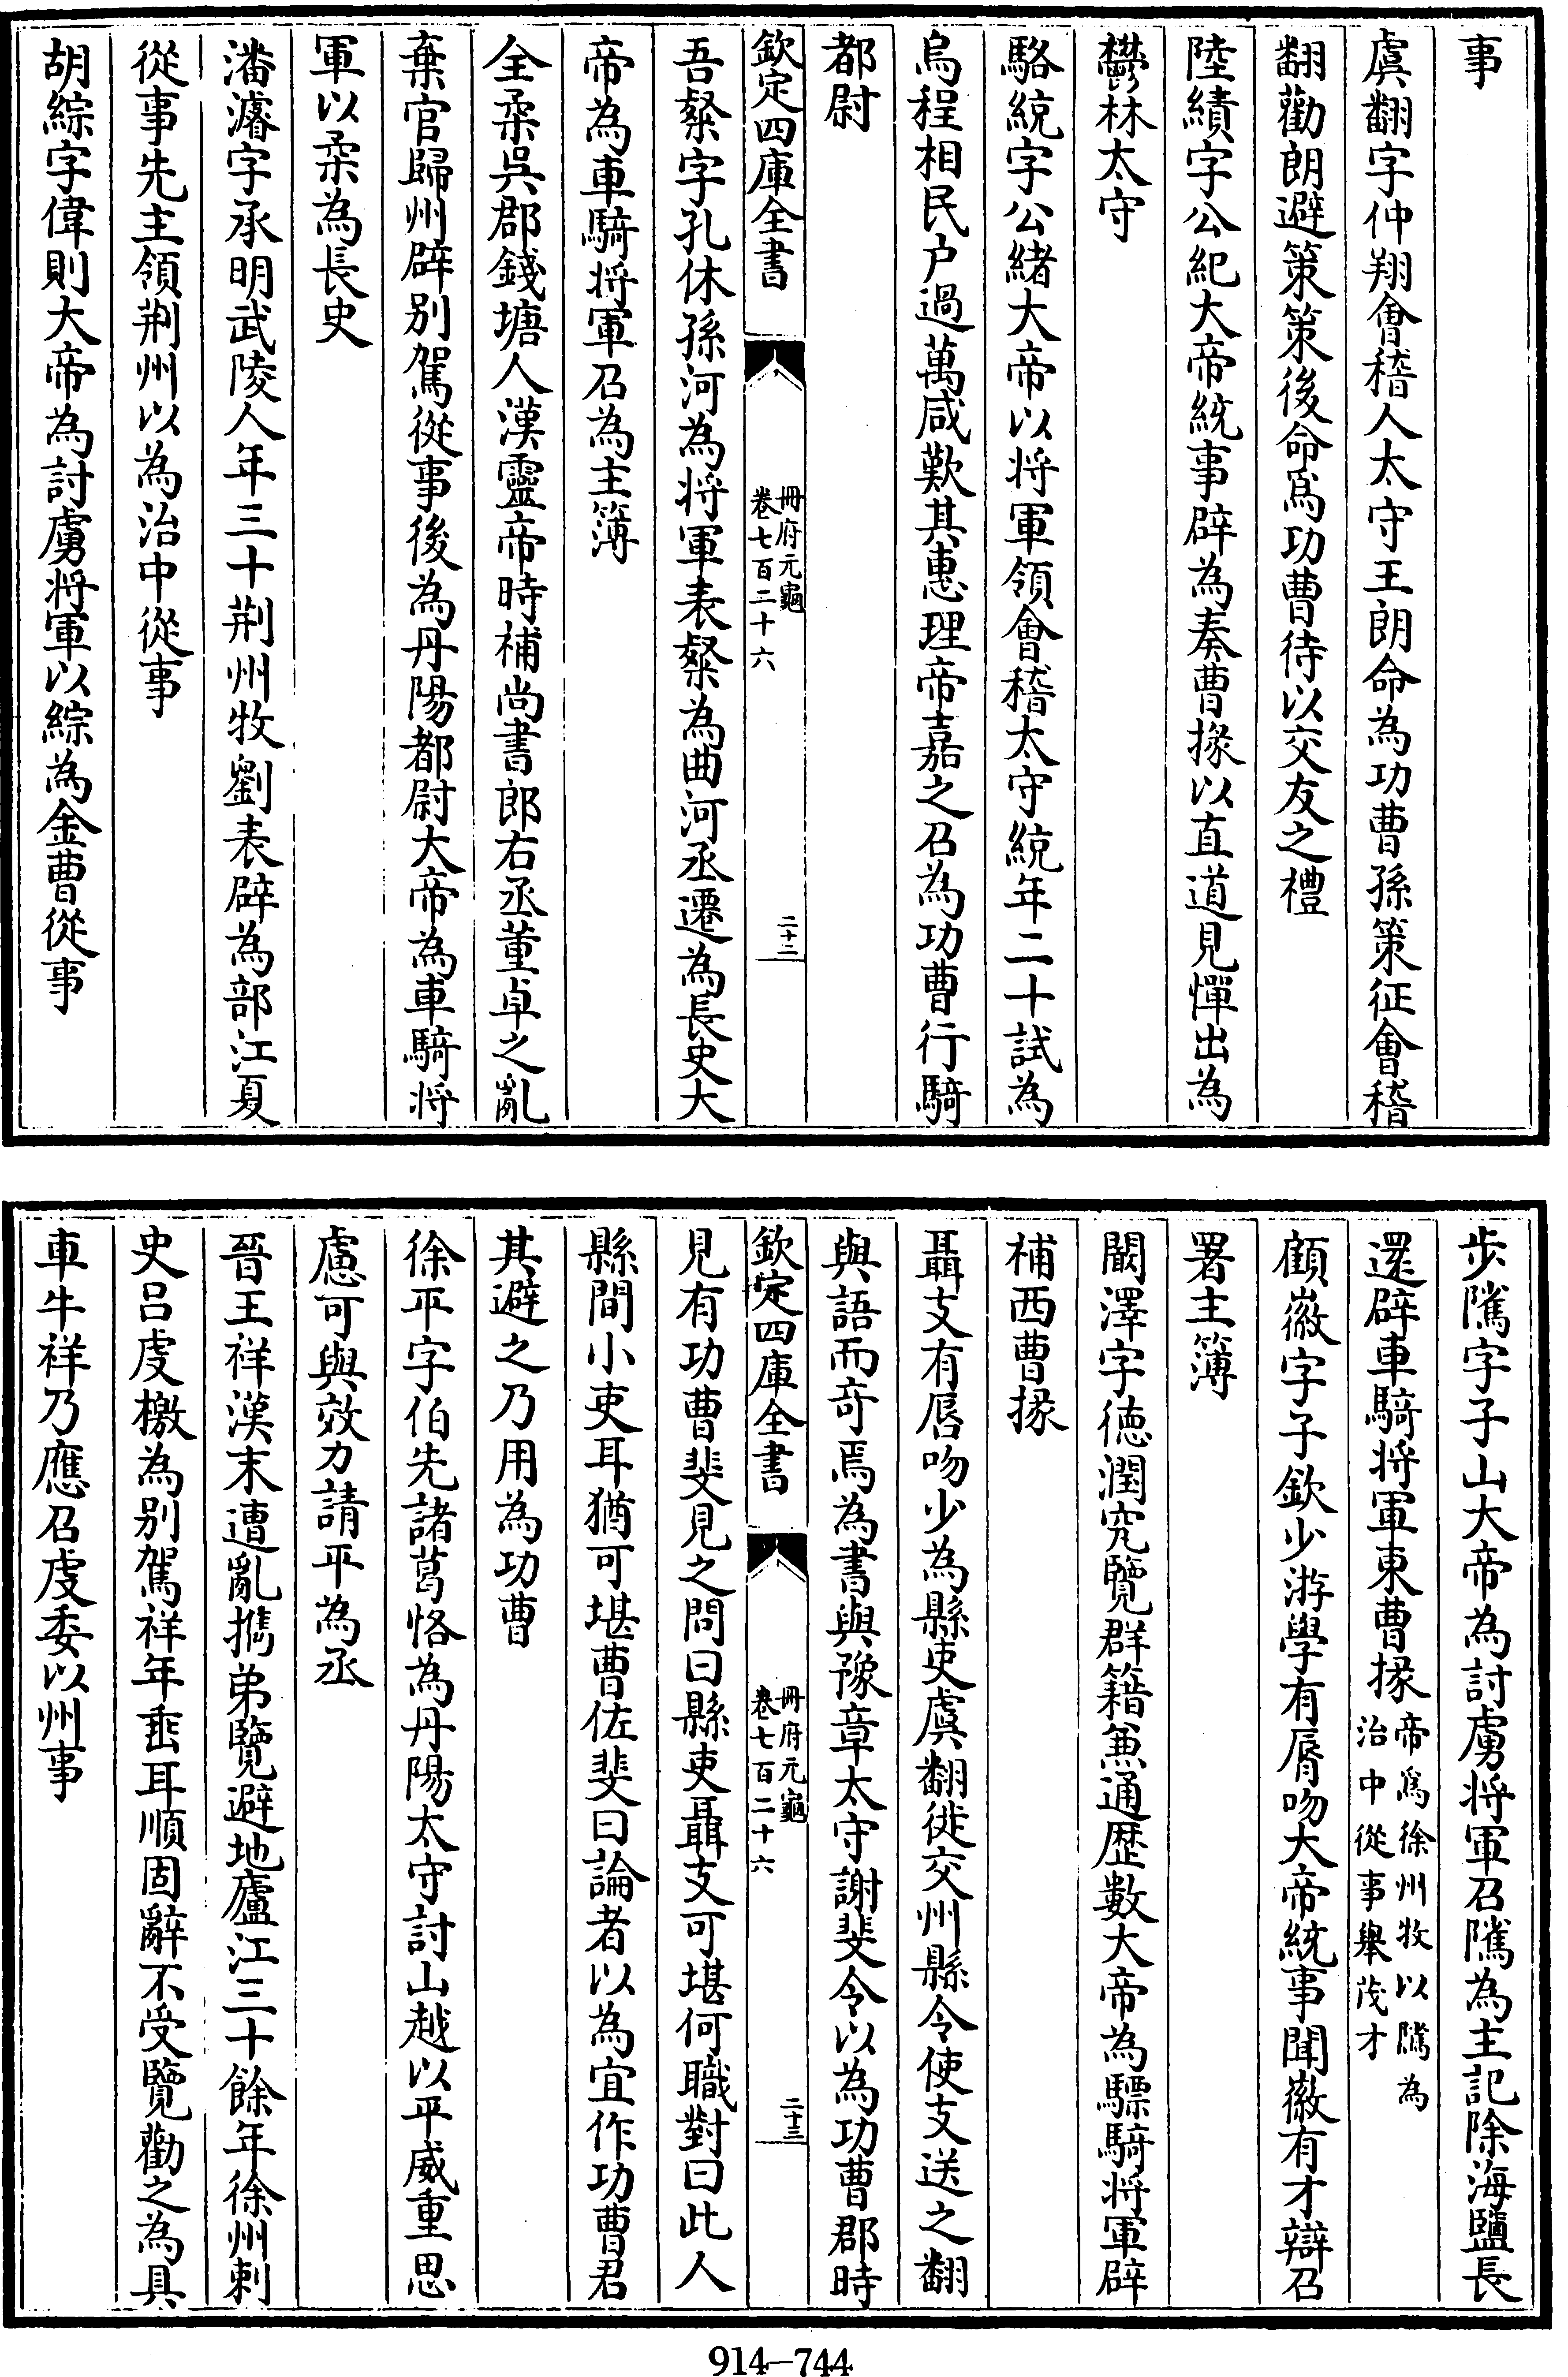 事
虞翻字仲翔會稽人太守王朗命為功曹孫策征會稽
翻勸朗避策策後命爲功曹待以交友之禮
陸績字公紀大帝統事辟為奏曹掾以直道見憚出為
欝林太守
駱統字公緒大帝以将軍領會稽太守統年二十試為
烏程相民户過萬咸歎其惠理帝嘉之召為功曹行騎
都尉
欽定四庫全書
冊府元龜
卷七百二十六
二十二
吾粲字孔休孫河為将軍表粲為曲河丞遷為長史大
帝為車騎将軍召為主簿
全柔吳郡錢塘人漢靈帝時補尚書郎右丞董卓之亂
棄官歸州辟别駕從事後為丹陽都尉大帝為車騎将
軍以柔為長史
潘濬字承明武陵人年三十荆州牧劉表辟為部江夏
從事先主領荆州以為治中從事
胡綜字偉則大帝為討虜将軍以綜為金曹從事
步隲字子山大帝為討虜将軍召隲為主記除海鹽長
還辟車騎将軍東曹掾帝爲徐州牧以隲為治中從事舉茂才
顧徽字子欽少游學有脣吻大帝統事聞徽有才辯召
署主簿
闞澤字德潤究覽群籍兼通歷數大帝為驃騎将軍辟
補西曹掾
聶支有唇吻少為縣吏虞翻徙交州縣令使支送之翻
與語而竒焉為書與豫章太守謝斐令以為功曹郡時
欽定四庫全書
冊府元龜
卷七百二十六
二十三
見有功曹斐見之問曰縣吏聶支可堪何職對曰此人
縣間小吏耳猶可堪曹佐斐曰論者以為宜作功曹君
其避之乃用為功曹
徐平字伯先諸葛恪為丹陽太守討山越以平威重思
慮可與效力請平為丞
晉王祥漢末遭亂攜弟覽避地廬江三十餘年徐州刺
史吕虔檄為别駕祥年垂耳順固辭不受覽勸之為具
車牛祥乃應召虔委以州事
914-744